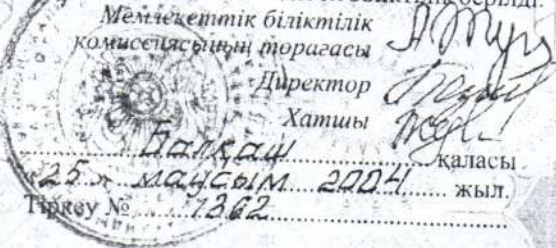 берілді.
Мемлекеттік біліктілік
комиссиясының төрағасы
Директор
Хатшы
Балқаш қаласы
«25» маусым 2004 жыл.
Тіркеу № 1362